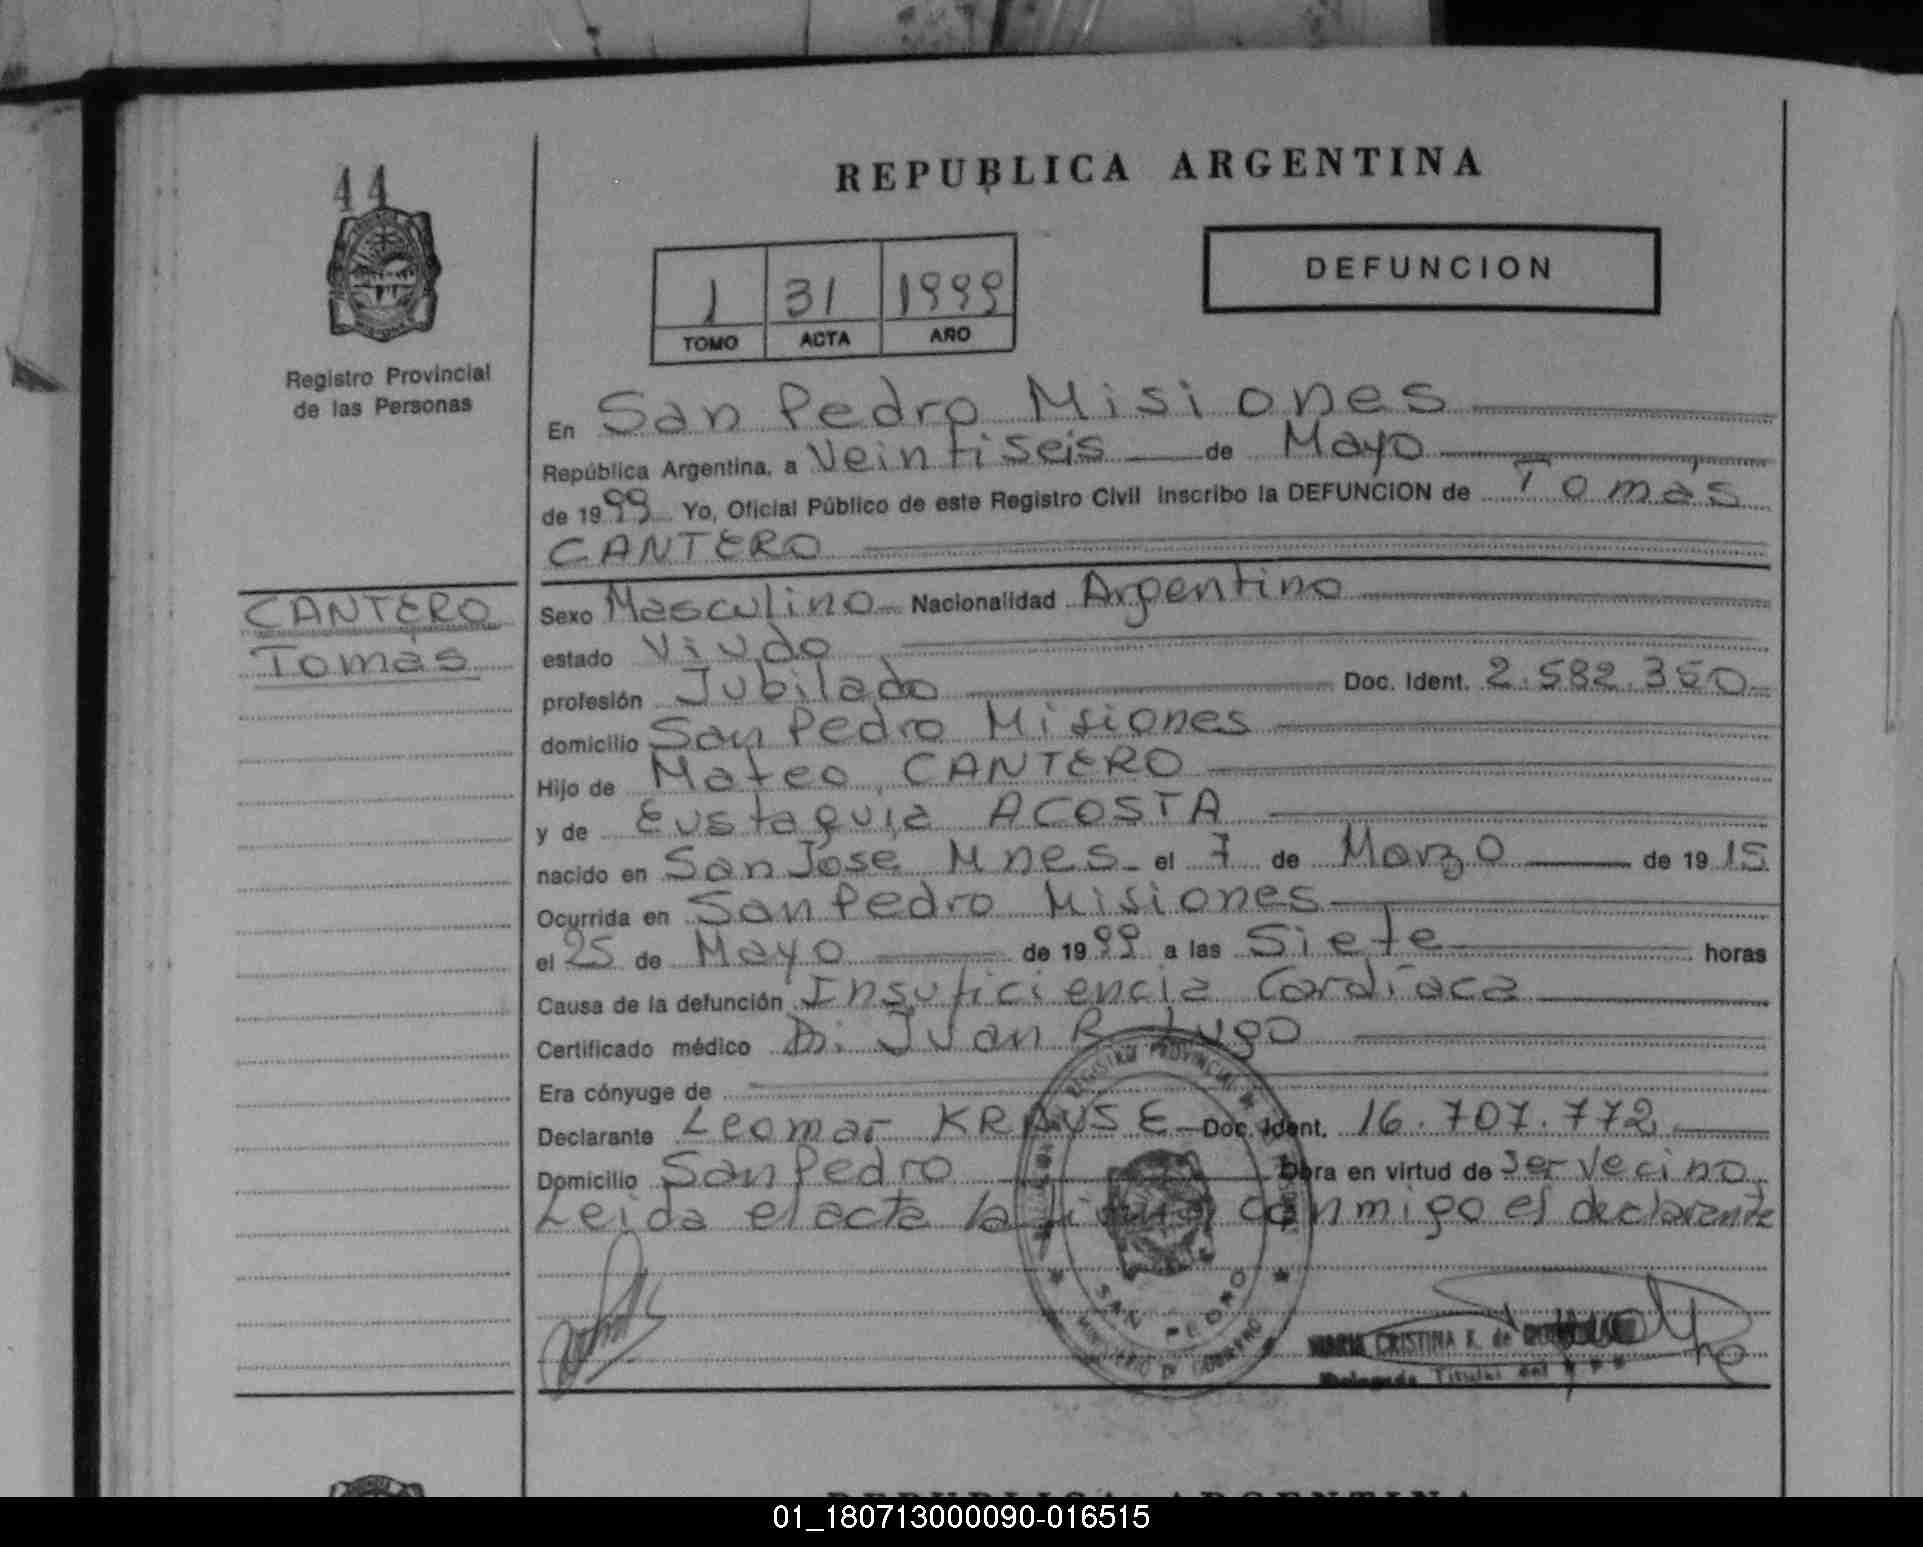 44
REPUBLICA ARGENTINA
DEFUNCION
1 31 1999
TOMO ACTA AÑO
Registro Provincial
de las Personas
En San Pedro Misiones
República Argentina, a Veintiseis de Mayo
de 1999 Yo, Oficial Público de este Registro Civil inscribo la DEFUNCION de Tomás
CANTERO
CANTERO
Tomás
Sexo Masculino Nacionalidad Argentino
estado Viudo
profesión Jubilado Doc. Ident. 2.582.350
domicilio San Pedro Misiones
Hijo de Mateo CANTERO
y de Eustaquia ACOSTA
nacido en San Jose Mnes el 7 de Marzo de 1915
Ocurrida en San Pedro Misiones
el 25 de Mayo de 1999 a las Siete horas
Causa de la defunción Insuficiencia Cardíaca
Certificado médico Dr. Juan B. Lugo
Era cónyuge de
Declarante Leomar KRAUSE Doc. Ident. 16.707.772
Domicilio San Pedro Obra en virtud de ser Vecino
Leida el acta la firma conmigo el declarante
REGISTRO PROVINCIAL DE
SAN PEDRO
MINISTERIO DE GOBIERNO
MARIA CRISTINA K. de
Delegada Titular del
REPUBLICA ARGENTINA
01_180713000090-016515